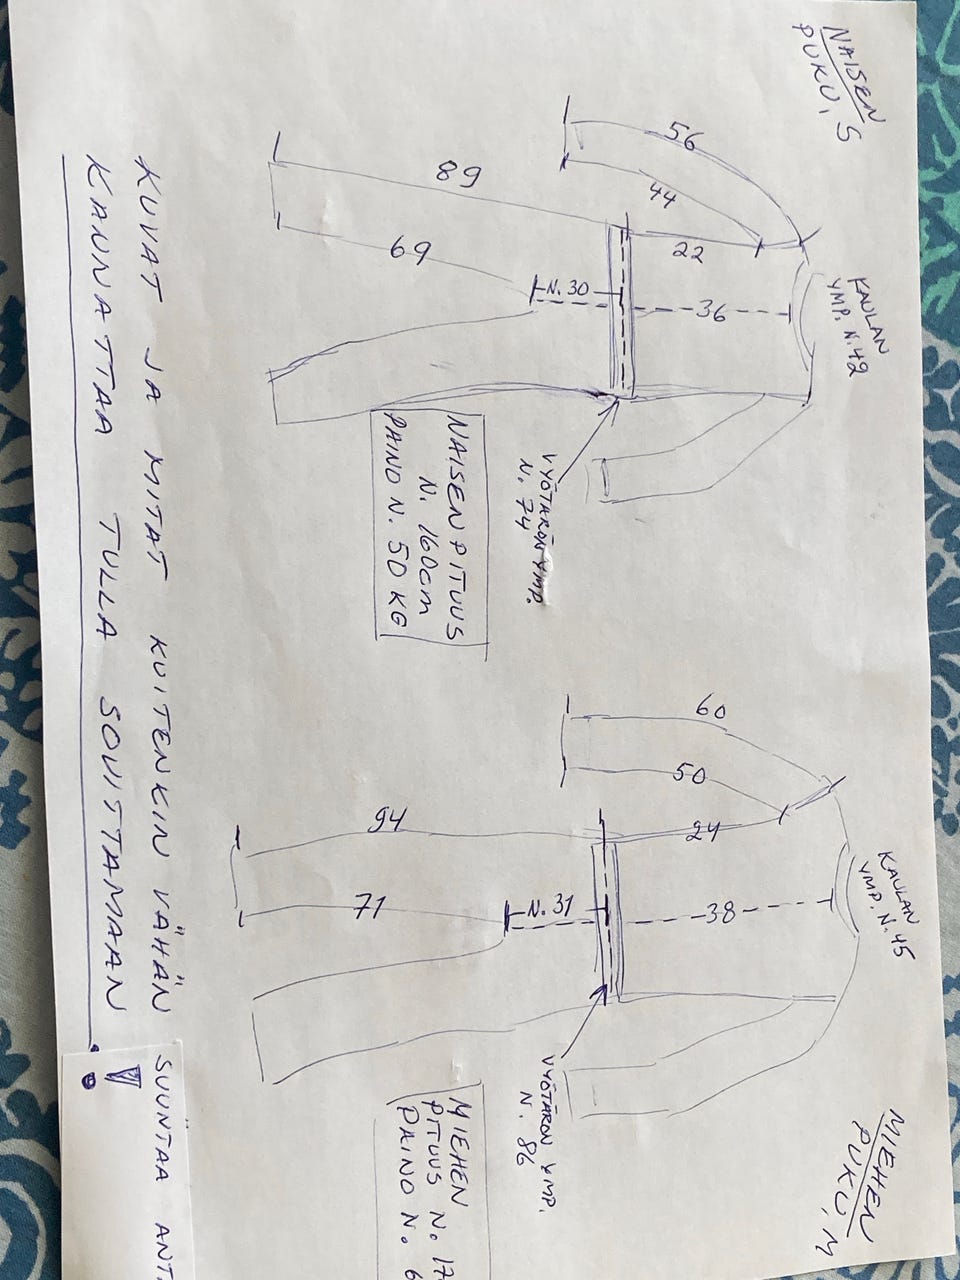 NAISEN
PUKU, S
56
44
22
89
69
N. 30
36
KAULAN
YMP. N. 42
VYÖTÄRÖN YMP.
N. 74
NAISEN PITUUS
N. 160cm
PAINO N. 50 KG
MIEHEN
PUKU, M
60
50
24
94
71
N. 31
38
KAULAN
YMP. N. 45
VYÖTÄRÖN YMP.
N. 86
MIEHEN
PITUUS N. 17
PAINO N. 6
KUVAT JA MITAT KUITENKIN VÄHÄN SUUNTAA ANT.
KANNATTAA TULLA SOVITTAMAAN !